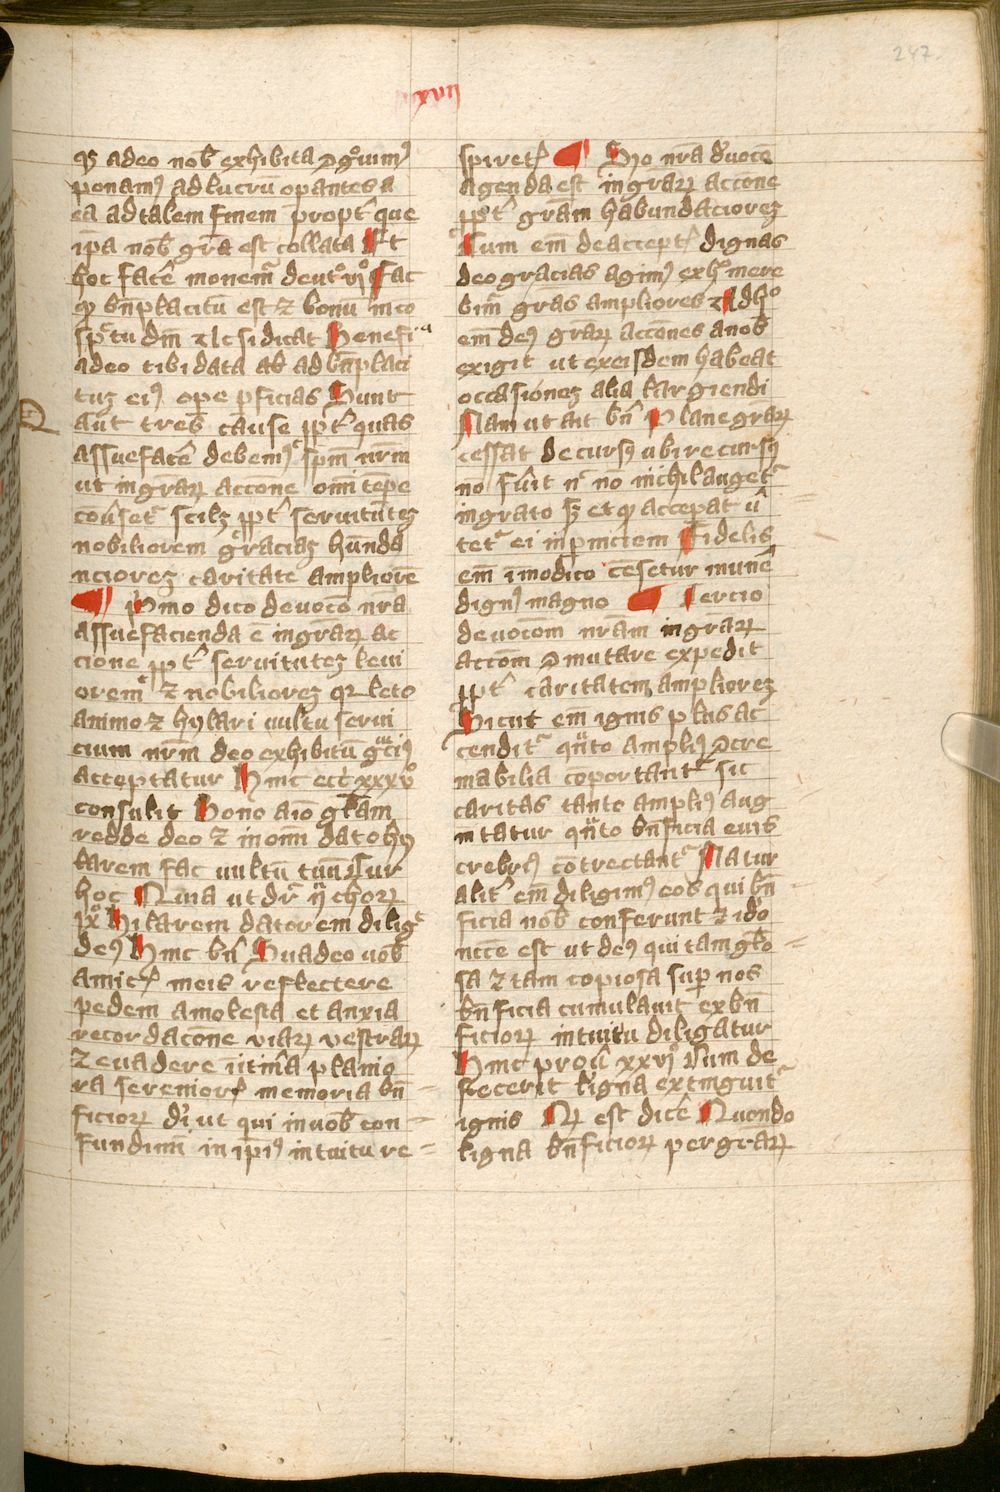 247.
lxxvii
qꝫ adeo nob̄ exhibita ꝯgͦuimꝰ
ponamꝰ ad lucrū opantes a
ea ad talem finem propt̄ que
ip̄a nob̄ gr̄a est collata Et
hoc facē monemᷣ deutͦ viͦ Fac
qͦ bn̄placitū est ⁊ bonū in co
spᷣtu dn̄i ⁊ lc̄ si dicat Benefiᵃ
a deo tibi data ab ad bn̄placi
tuꝫ eiꝰ ope ꝑficias Sunt
aūt tres cause ꝓpt̄ quas
assuefacē debemꝰ spm̄ nrm̄
ut in gr̄aꝝ acc̄one om̄i tēpe
cōsuetᷣ scilꝫ ꝓpt̄ seruitutēs
nobiliorem graciaꝫ hūnda
nciorēꝫ caritatē ampliorē
Pͥmo dico deuoc̄o nr̄a
assuefacienda ē in gr̄aꝝ ac
cione ꝓpt̄ seruitutēꝫ leui
orem ⁊ nobiliorēꝫ qꝛ leto
animo ⁊ hylari uultu serui
cium nrm̄ deo exhibitū gᵃciꝰ
acceptatur Hinc ecc̄i xxxvͦ
consulit Bono aīo gl̄am
redde deo ⁊ in om̄i dato hy
larem fac uultū tuū Cur
hoc Quia ut drᷣ ij choꝝ
ixͦ Hilarem datorem diligᷣ
deꝰ Hinc bn̄ Suadeo uob̄
amicꝭ meis reflectere
pedem a molesta et anxia
recordac̄one viaꝝ vestraꝝ
⁊ euadere ī itin̄a planio
ra serenioꝭ memoria bn̄
ficioꝝ di ut qui in uob̄ con
fundimī in ipīꝰ intuitu re
spiretꝭ Sc̄do nr̄a deuoc̄o
agenda est in gr̄aꝝ acc̄one
ꝓpt̄ gr̄am habundaciorēꝫ
Cum em̄ de acceptꝭ dignas
deo gracias agimꝰ exhͥ mere
bimᷣ gr̄as ampliores Ad hͦ
em̄ deꝰ gr̄aꝝ acc̄ones a nob̄
exigit ut ex eisdem habeat
occasionēꝫ alia largiendi
Nam ut ait bn̄ Plane gr̄aꝝ
cessat decursꝰ ubi recursꝰ
no fūit nͥ no nichil augetᷣ
ingrato sꝫ et qͦ accepat ū
tetᷣ ei in ꝑniciem Fidelis
em̄ ī modico cēsetur munē
dignꝰ magno Tercio
deuoc̄om nr̄am in gr̄aꝝ
acc̄om ꝯmutare expedit
ꝓpt̄ caritatem ampliorēꝫ
Sicut em̄ ignis plus ac
cenditᷣ qn̄to ampliꝰ ꝯcre
mabilia cōportantᷣ sic
caritas tanto ampliꝰ aug
mtatur qn̄to bn̄ficia euis
crebriꝰ cōtrectantᷣ Natur
alit̄ em̄ diligimꝰ eos qui bn̄
ficia nob̄ conferunt ⁊ ido
nec̄e est ut deꝰ qui tam gl̄o
sa ⁊ tam copiosa suꝑ nos
bn̄ficia cumulauit ex bn̄
ficioꝝ intuitu diligatur
Hinc proū xxviͦ Cum de
fecerit ligna extinguitᷣ
ignis Qͣ est dicē Quando
ligna bn̄ficioꝝ per gr̄aꝝ